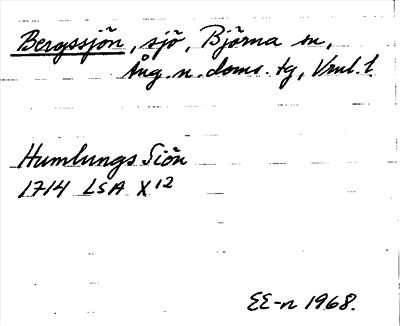 Bergssjön, sjö, Björna sn,
Ång. n. doms. tg, Vnl. l.
Humlungs Siön
1714 LSA X12
EE-n 1968.